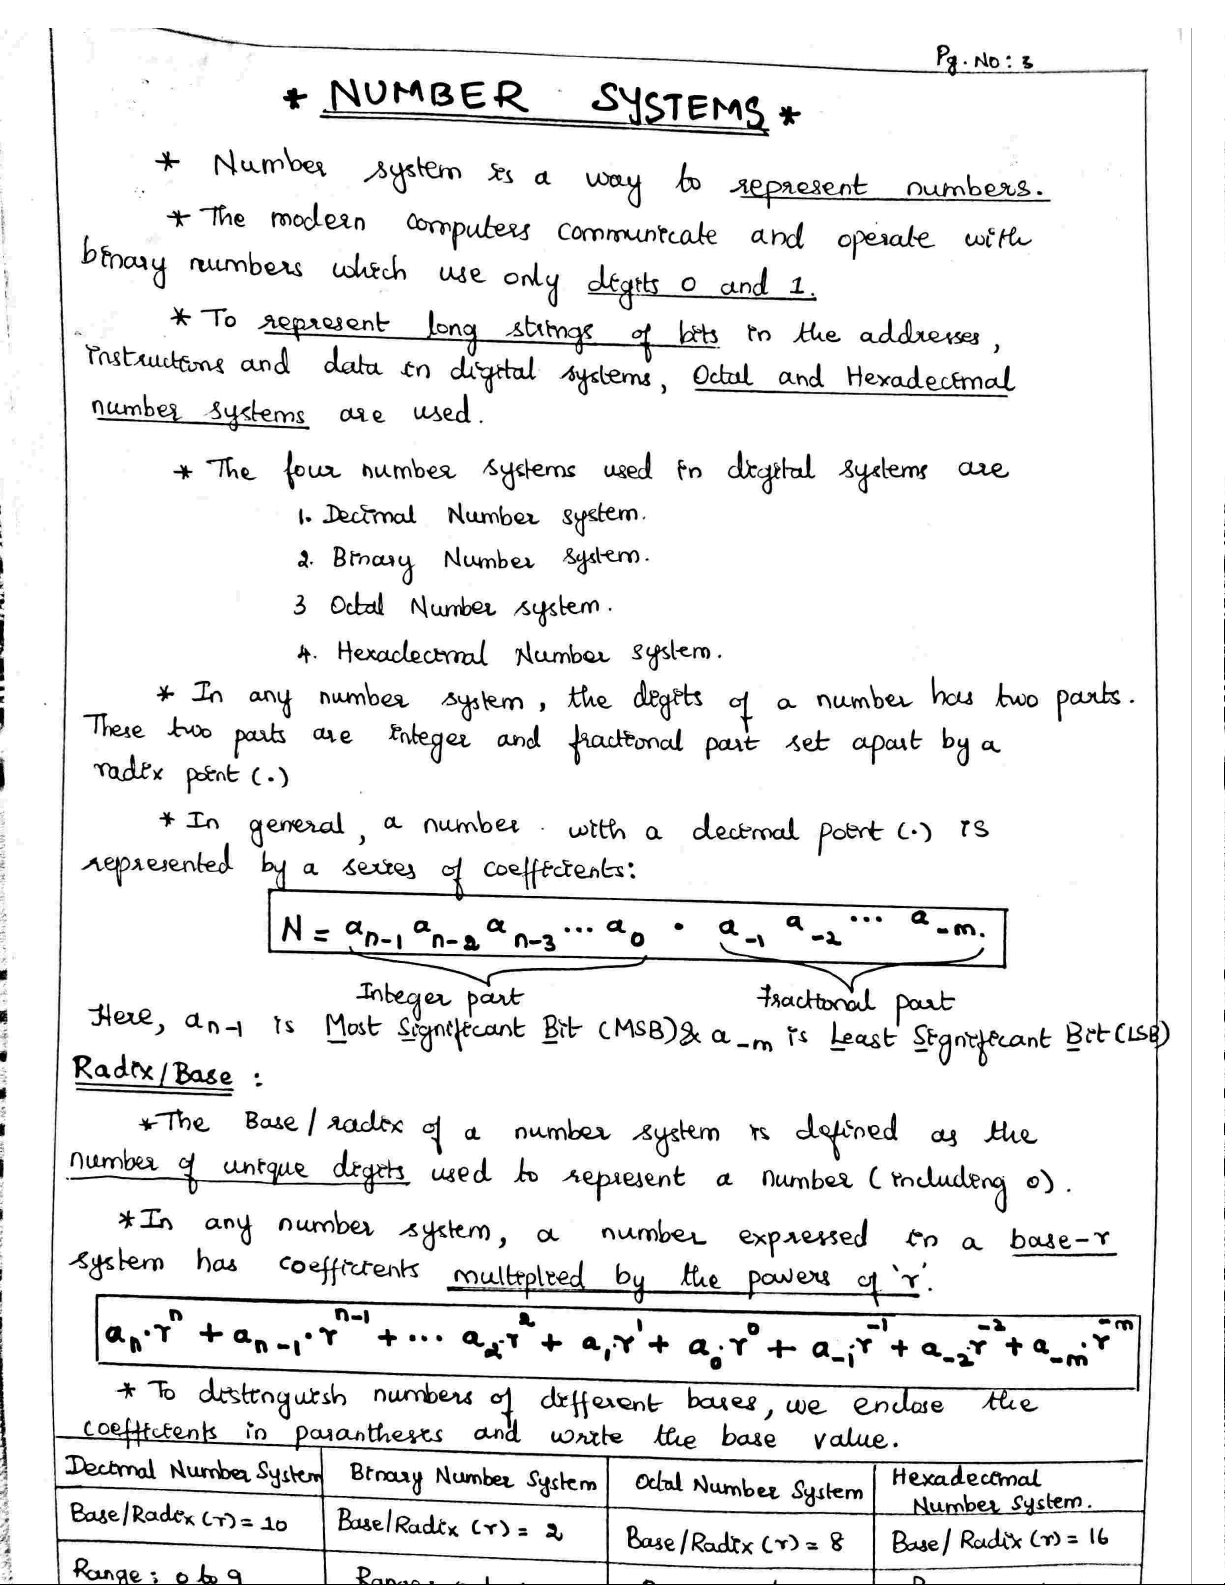 Pg. No: 3
* NUMBER SYSTEMS *
* Number system is a way to represent numbers.
* The modern computers communicate and operate with
binary numbers which use only digits 0 and 1.
* To represent long strings of bits in the addresses,
instructions and data in digital systems, Octal and Hexadecimal
number systems are used.
* The four number systems used in digital systems are
1. Decimal Number system.
2. Binary Number System.
3 Octal Number system.
4. Hexadecimal Number system.
* In any number system, the digits of a number has two parts.
These two parts are integer and fractional part set apart by a
radix point (.)
* In general, a number with a decimal point (.) is
represented by a series of coefficients:
N = a_{n-1} a_{n-2} a_{n-3} ... a_0 . a_{-1} a_{-2} ... a_{-m}.
Integer part fractional part
Here, a_{n-1} is Most Significant Bit (MSB) & a_{-m} is Least Significant Bit (LSB)
Radix/Base :
* The Base/radix of a number system is defined as the
number of unique digits used to represent a number (including 0).
* In any number system, a number expressed in a base-r
system has coefficients multiplied by the powers of 'r'.
a_n·r^n + a_{n-1}·r^{n-1} + ... a_2·r^2 + a_1r^1 + a_0·r^0 + a_{-1}·r^{-1} + a_{-2}·r^{-2} + a_{-m}·r^{-m}
* To distinguish numbers of different bases, we enclose the
coefficients in parantheses and write the base value.
Decimal Number System Binary Number System Octal Number System Hexadecimal Number System.
Base/Radix (r) = 10 Base/Radix (r) = 2 Base/Radix (r) = 8 Base/Radix (r) = 16
Range: 0 to 9